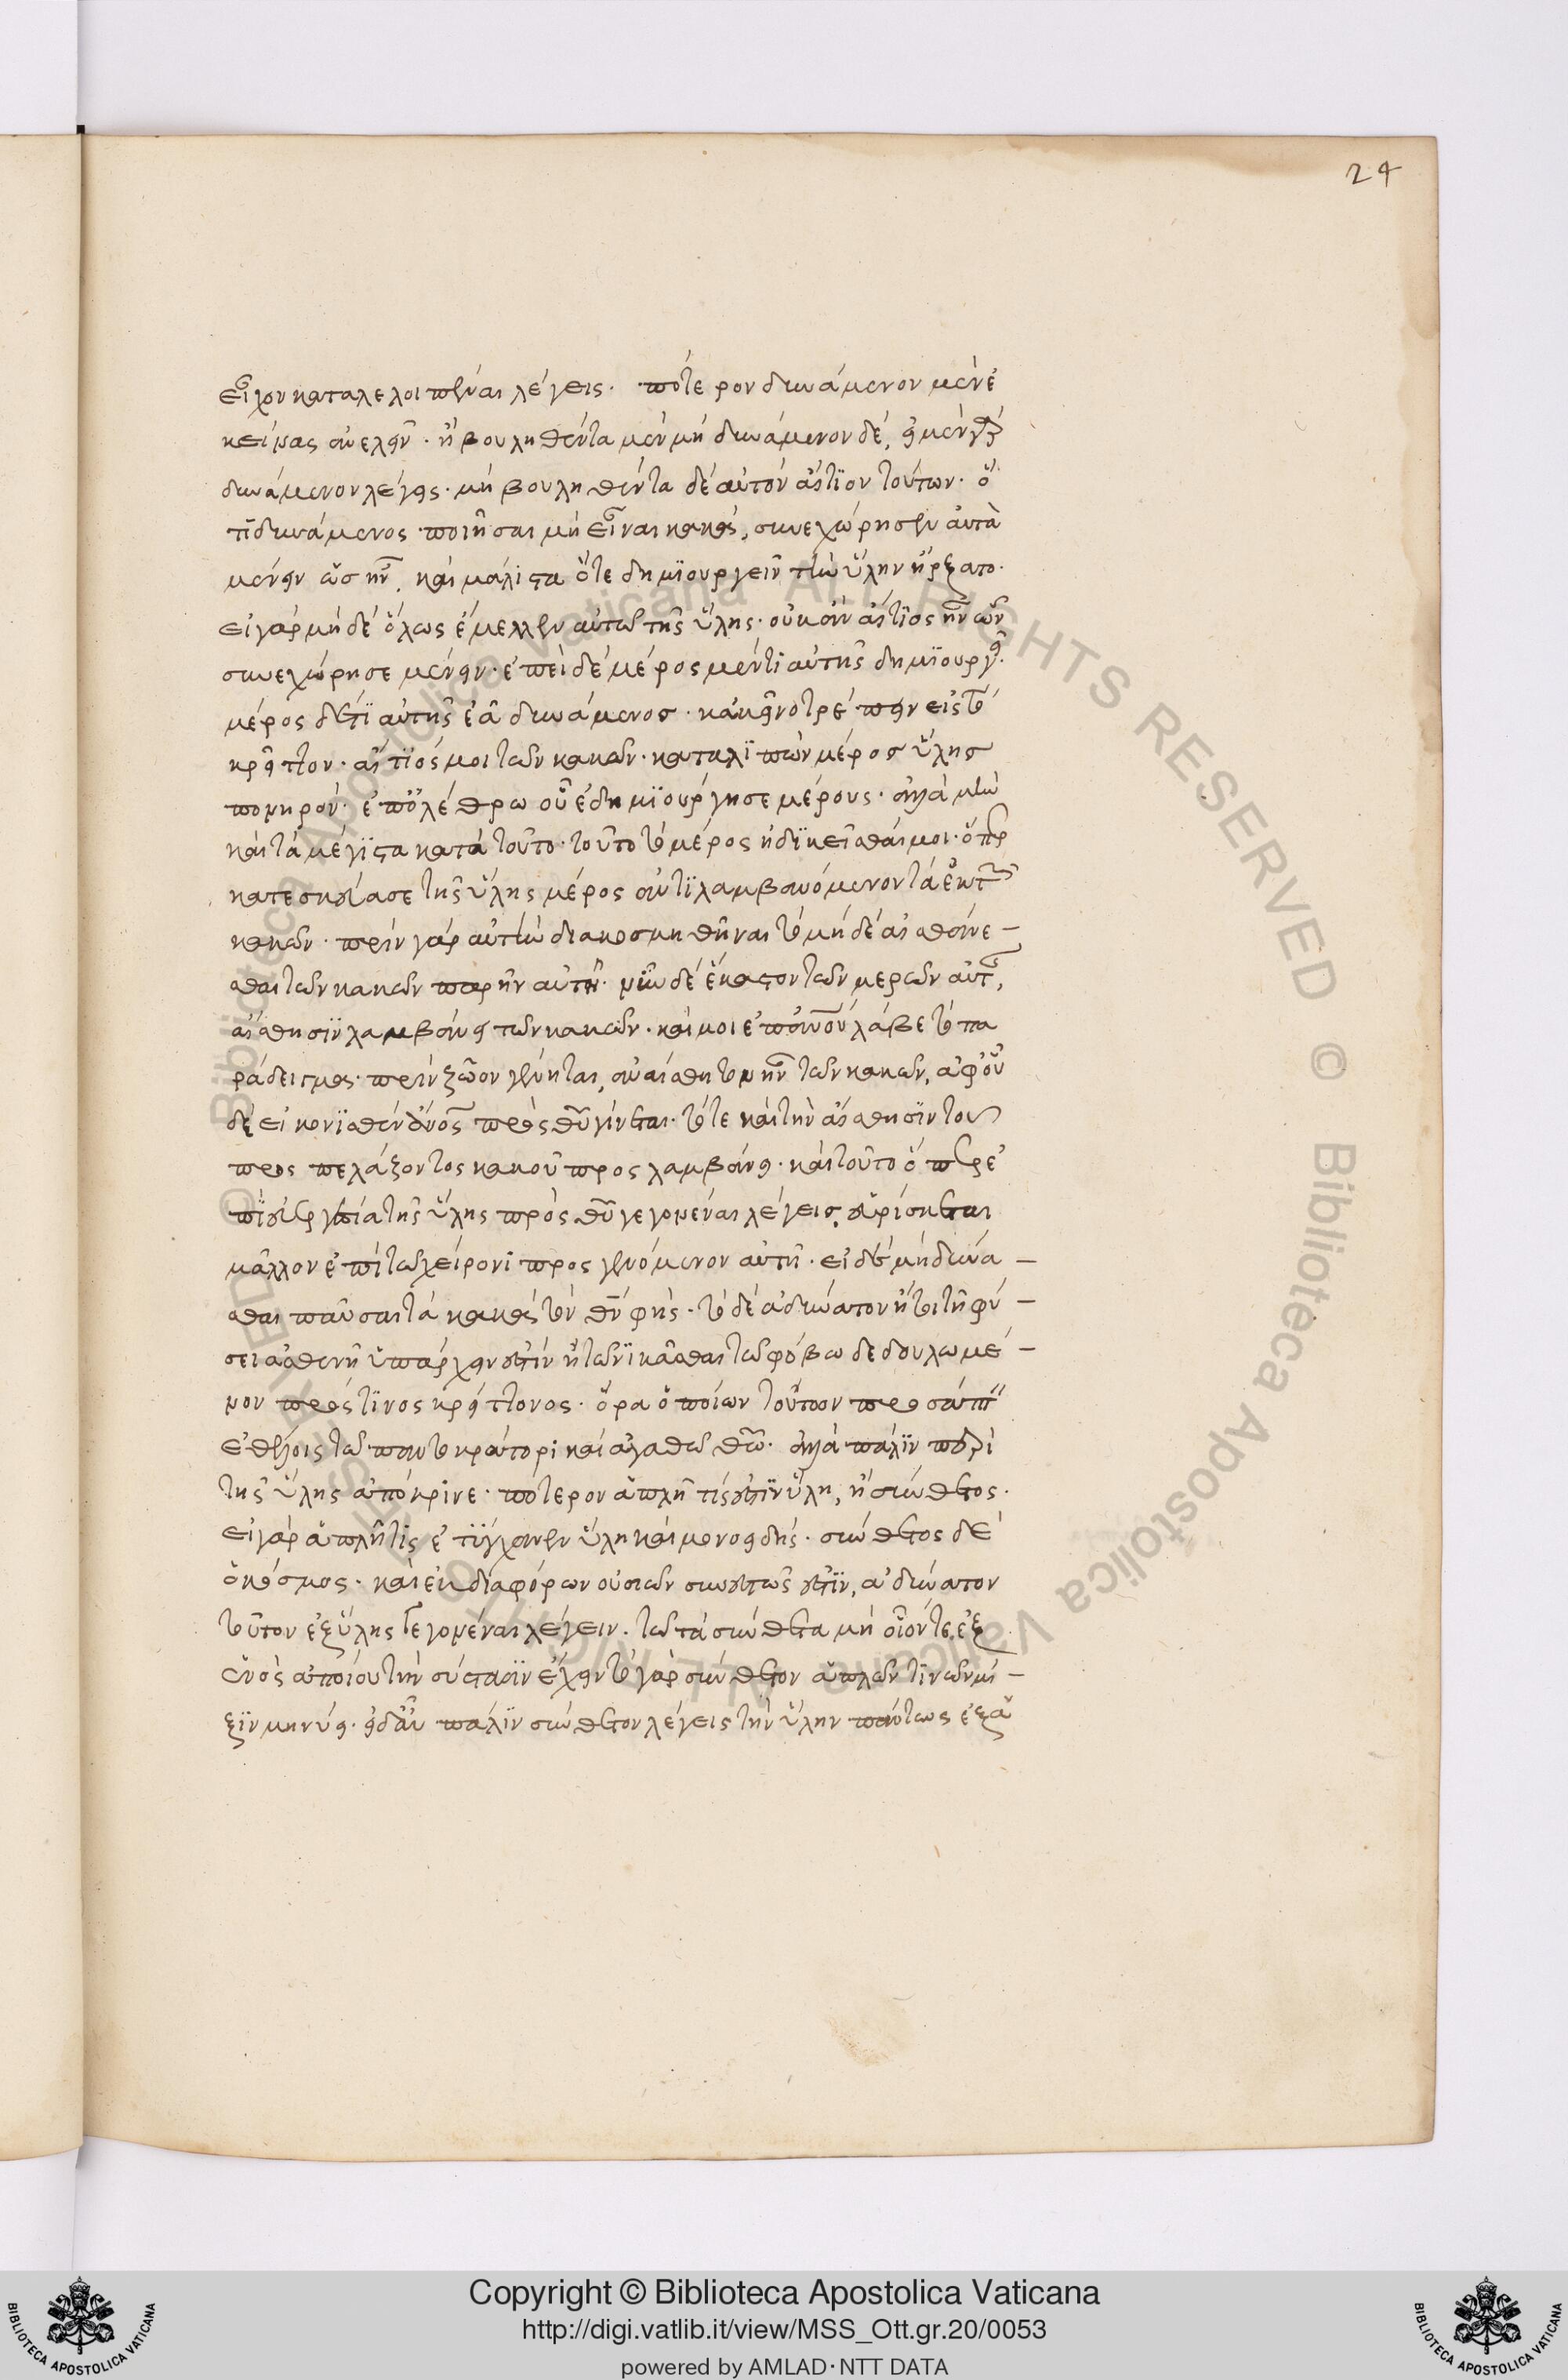 24
εἶχον καταλελοιπέναι λέγεις· πότερον δυνάμενον μὲν ἐ
κείνας ἀνελεῖν· ἢ βουληθέντα μὲν μὴ δυνάμενον δέ, εἰ μὲν γὰρ
δυνάμενον λέγεις· μὴ βουληθέντα δὲ αὐτὸν αἴτιον τούτων· ὅ
τι δυνάμενος ποιῆσαι μὴ εἶναι κακὰ, συνεχώρησεν αὐτὰ
μένειν ὡς ἦν, καὶ μάλιστα ὅτε δημιουργεῖν τὴν ὕλην ἤρξατο·
εἰ γὰρ μηδὲ ὅλως ἔμελλεν αὐτῷ τῆς ὕλης· οὐκ ἂν αἴτιος ἦν ὧν
συνεχώρησε μένειν· ἐπεὶ δὲ μέρος μέν τι αὐτῆς δημιουργεῖ·
μέρος δέ τι αὐτῆς ἐᾶ δυνάμενος· κἀκεῖνο τρέπειν εἰς τὸ
κρεῖττον· αἴτιός μοι τῶν κακῶν· καταλιπὼν μέρος ὕλης
πονηρόν· ἐπ' ὀλέθρῳ οὗ ἐδημιούργησε μέρους· ἀλλὰ μὴν
καὶ τὰ μέγιστα κατὰ τοῦτο· τοῦτο τὸ μέρος ἠδικεῖσθαί μοι· ὅπερ
κατεσκεύασε τῆς ὕλης μέρος ἀντιλαμβανόμενον τὰ ἐκ τῶν
κακῶν· πρὶν γὰρ αὐτὴν διακοσμηθῆναι τὸ μηδὲ αἰσθάνε –
σθαι τῶν κακῶν παρῆν αὐτῇ· νῦν δὲ ἕκαστον τῶν μερῶν αὐτῆς,
αἴσθησιν λαμβάνει τῶν κακῶν· καί μοι ἐπ' ἀνθρώπου λάβε τὸ πα
ράδειγμα· πρὶν ζῶον γένηται, ἀναίσθητον ἦν τῶν κακῶν, ἀφ' οὗ
δὲ εἰκονισθὲν ἀνθρώπος πρὸς θεοῦ γίνεται· τότε καὶ τὴν αἴσθησιν τοῦ
προσπελάζοντος κακοῦ προσλαμβάνει· καὶ τοῦτο ὅπερ ἐ
π' εὐεργεσίᾳ τῆς ὕλης πρὸς θεοῦ γεγονέναι λέγεις, εὑρίσκεται
μᾶλλον ἐπὶ τῷ χείρονι προσγενόμενον αὐτῇ· εἰ δὲ τὸ μὴ δύνα –
σθαι παῦσαι τὰ κακὰ τὸν θεὸν φῄς· τὸ δὲ ἀδύνατον ἤτοι τῇ φύ –
σει ἀσθενῆ ὑπάρχειν ἐστὶν ἢ τῷ νικᾶσθαι τῷ φόβῳ δεδουλωμέ –
νον πρός τινος κρείττονος· ὅρα ὁποῖον τούτων προσάπτειν
ἐθέλοις τῷ παντοκράτορι καὶ ἀγαθῷ θεῷ· ἀλλὰ πάλιν περὶ
τῆς ὕλης ἀπόκρινε· πότερον ἁπλῆ τίς ἐστιν ὕλη, ἢ σύνθετος·
εἰ γὰρ ἁπλῆ τις ἐτύγχανεν ὕλη καὶ μονοειδής· σύνθετος δὲ
ὁ κόσμος· καὶ ἐκ διαφόρων οὐσιῶν συνεστώς ἐστιν, ἀδύνατον
τοῦτον ἐξ ὕλης γεγονέναι λέγειν· τῷ τὰ σύνθετα μὴ οἷόν τε ἐξ
ἑνὸς ἀποίου τὴν σύστασιν ἔχειν τὸ γὰρ σύνθετον ἁπλῶν τινων μί –
ξιν μηνύει· εἰ δ' αὖ πάλιν σύνθετον λέγεις τὴν ὕλην πάντως ἐξ ἁ
Copyright © Biblioteca Apostolica Vaticana
http://digi.vatlib.it/view/MSS_Ott.gr.20/0053
powered by AMLAD·NTT DATA